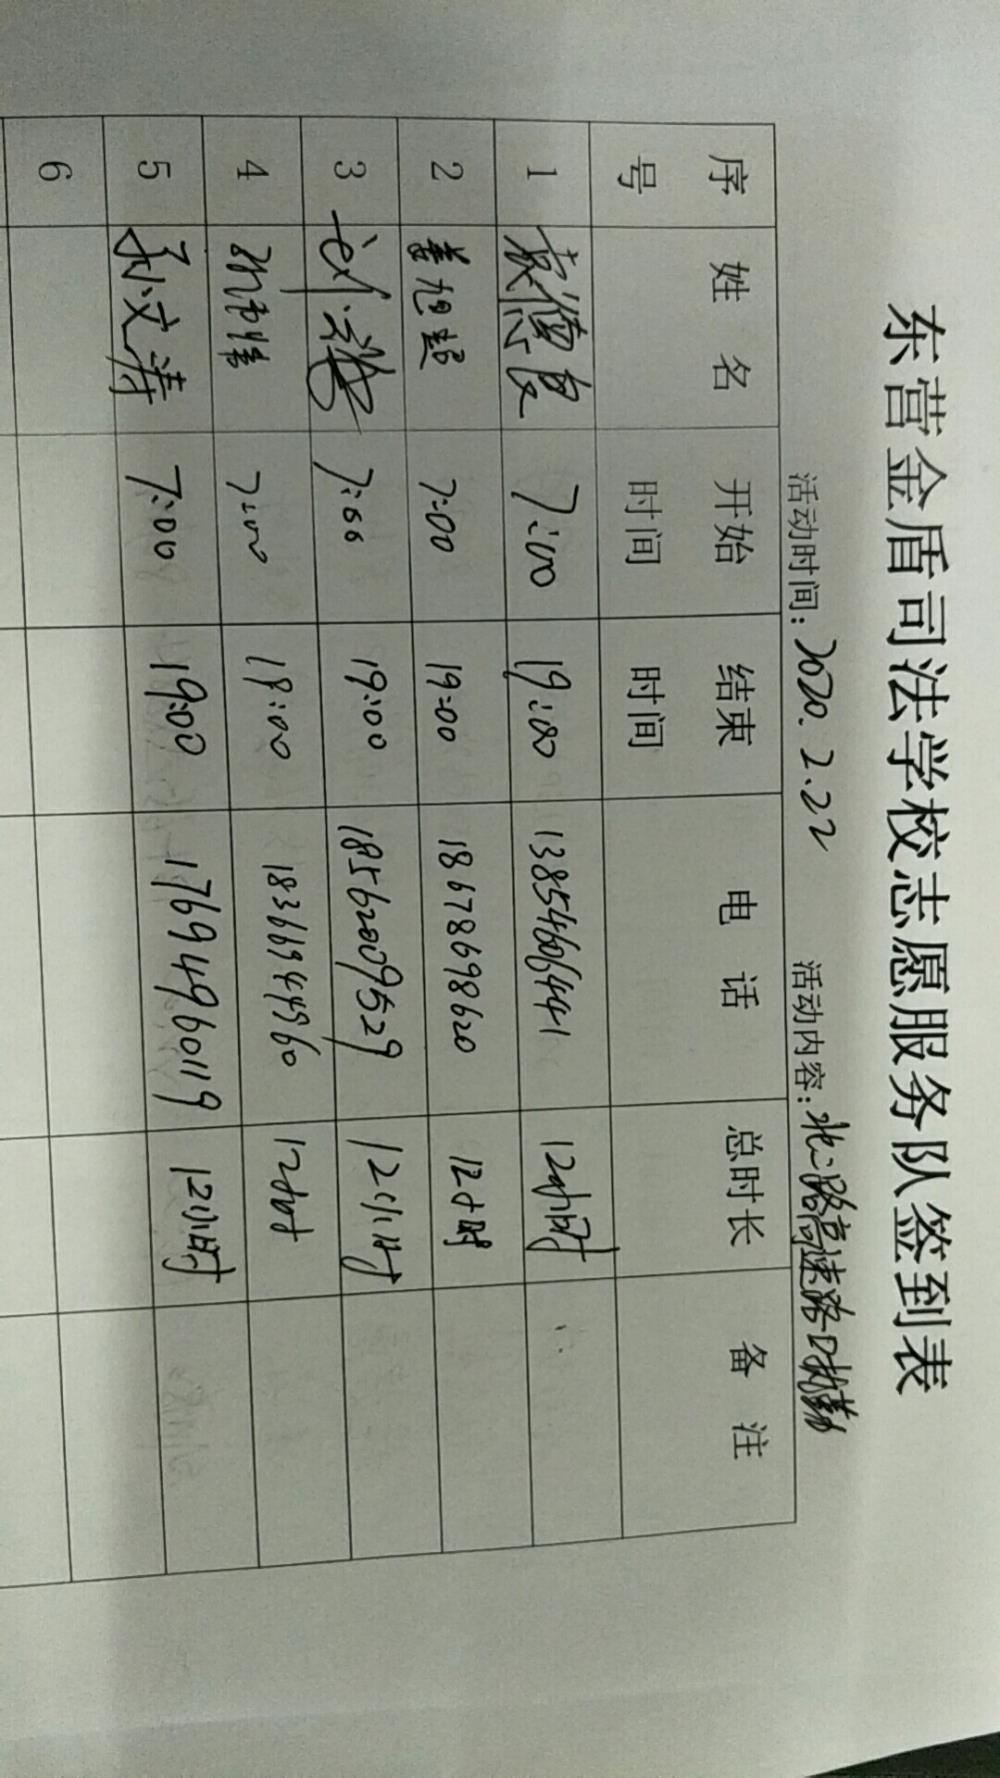 东营金盾司法学校志愿服务队签到表
活动时间：2020.2.22 活动内容：北二路高速路口执勤
序号 姓名 开始时间 结束时间 电话 总时长 备注
1 袁德良 7:00 19:00 13854606441 12小时
2 姜旭超 7:00 19:00 18678698620 12小时
3 7:00 19:00 18562009529 12小时
4 7:00 19:00 18366944960 12小时
5 孙文涛 7:00 19:00 17694960119 12小时
6